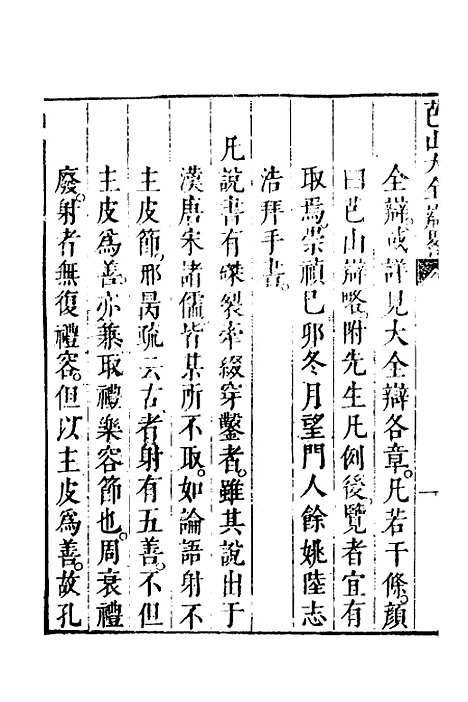 芑山大全辯畧 一
全辯或詳見大全辯各章。凡若干條。顏
曰芑山辯略。附先生凡例後。覽者宜有
取焉。崇禎己卯冬月望門人餘姚陸志
浩拜手書。
凡說書有　裂牽綴穿鑿者。雖其說出于
漢唐宋諸儒皆某所不取。如論語射不
主皮節。邢昺疏云古者射有五善。不但
主皮爲善。亦兼取禮樂容節也。周衰禮
廢。射者無復禮容。但以主皮爲善。故孔